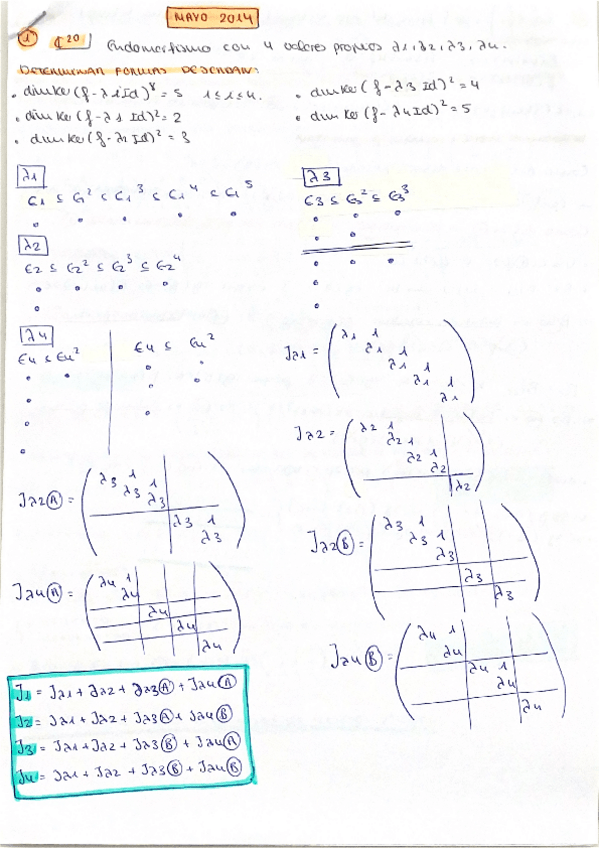 MAYO 2014
1 ℂ²⁰ Endomorfismo con 4 valores propios λ1, λ2, λ3, λ4.
DETERMINAR FORMAS DE JORDAN:
• dim Ker (f-λiId)⁸ = 5 1≤i≤4.
• dim Ker (f-λ1 Id)² = 2
• dim Ker (f-λ1 Id)² = 3
• dim Ker (f-λ3 Id)² = 4
• dim Ker (f-λ4 Id)² = 5
λ1
E1 ⊆ E1² ⊆ E1³ ⊆ E1⁴ ⊆ E1⁵
λ2
E2 ⊆ E2² ⊆ E2³ ⊆ E2⁴
λ3
E3 ⊆ E3² ⊆ E3³
λ4
E4 ⊆ E4² | E4 ⊆ E4²
Jλ1 =
λ1 1
λ1 1
λ1 1
λ1 1
λ1
Jλ2 =
λ2 1
λ2 1
λ2 1
λ2
λ2
Jλ2 Ⓐ =
λ3 1
λ3 1
λ3
λ3 1
λ3
Jλ2 Ⓑ =
λ3 1
λ3 1
λ3
λ3
λ3
Jλ4 Ⓐ =
λ4 1
λ4
λ4
λ4
λ4
Jλ4 Ⓑ =
λ4 1
λ4
λ4 1
λ4
λ4
J1 = Jλ1 + Jλ2 + Jλ3 Ⓐ + Jλ4 Ⓐ
J2 = Jλ1 + Jλ2 + Jλ3 Ⓐ + Jλ4 Ⓑ
J3 = Jλ1 + Jλ2 + Jλ3 Ⓑ + Jλ4 Ⓐ
J4 = Jλ1 + Jλ2 + Jλ3 Ⓑ + Jλ4 Ⓑ